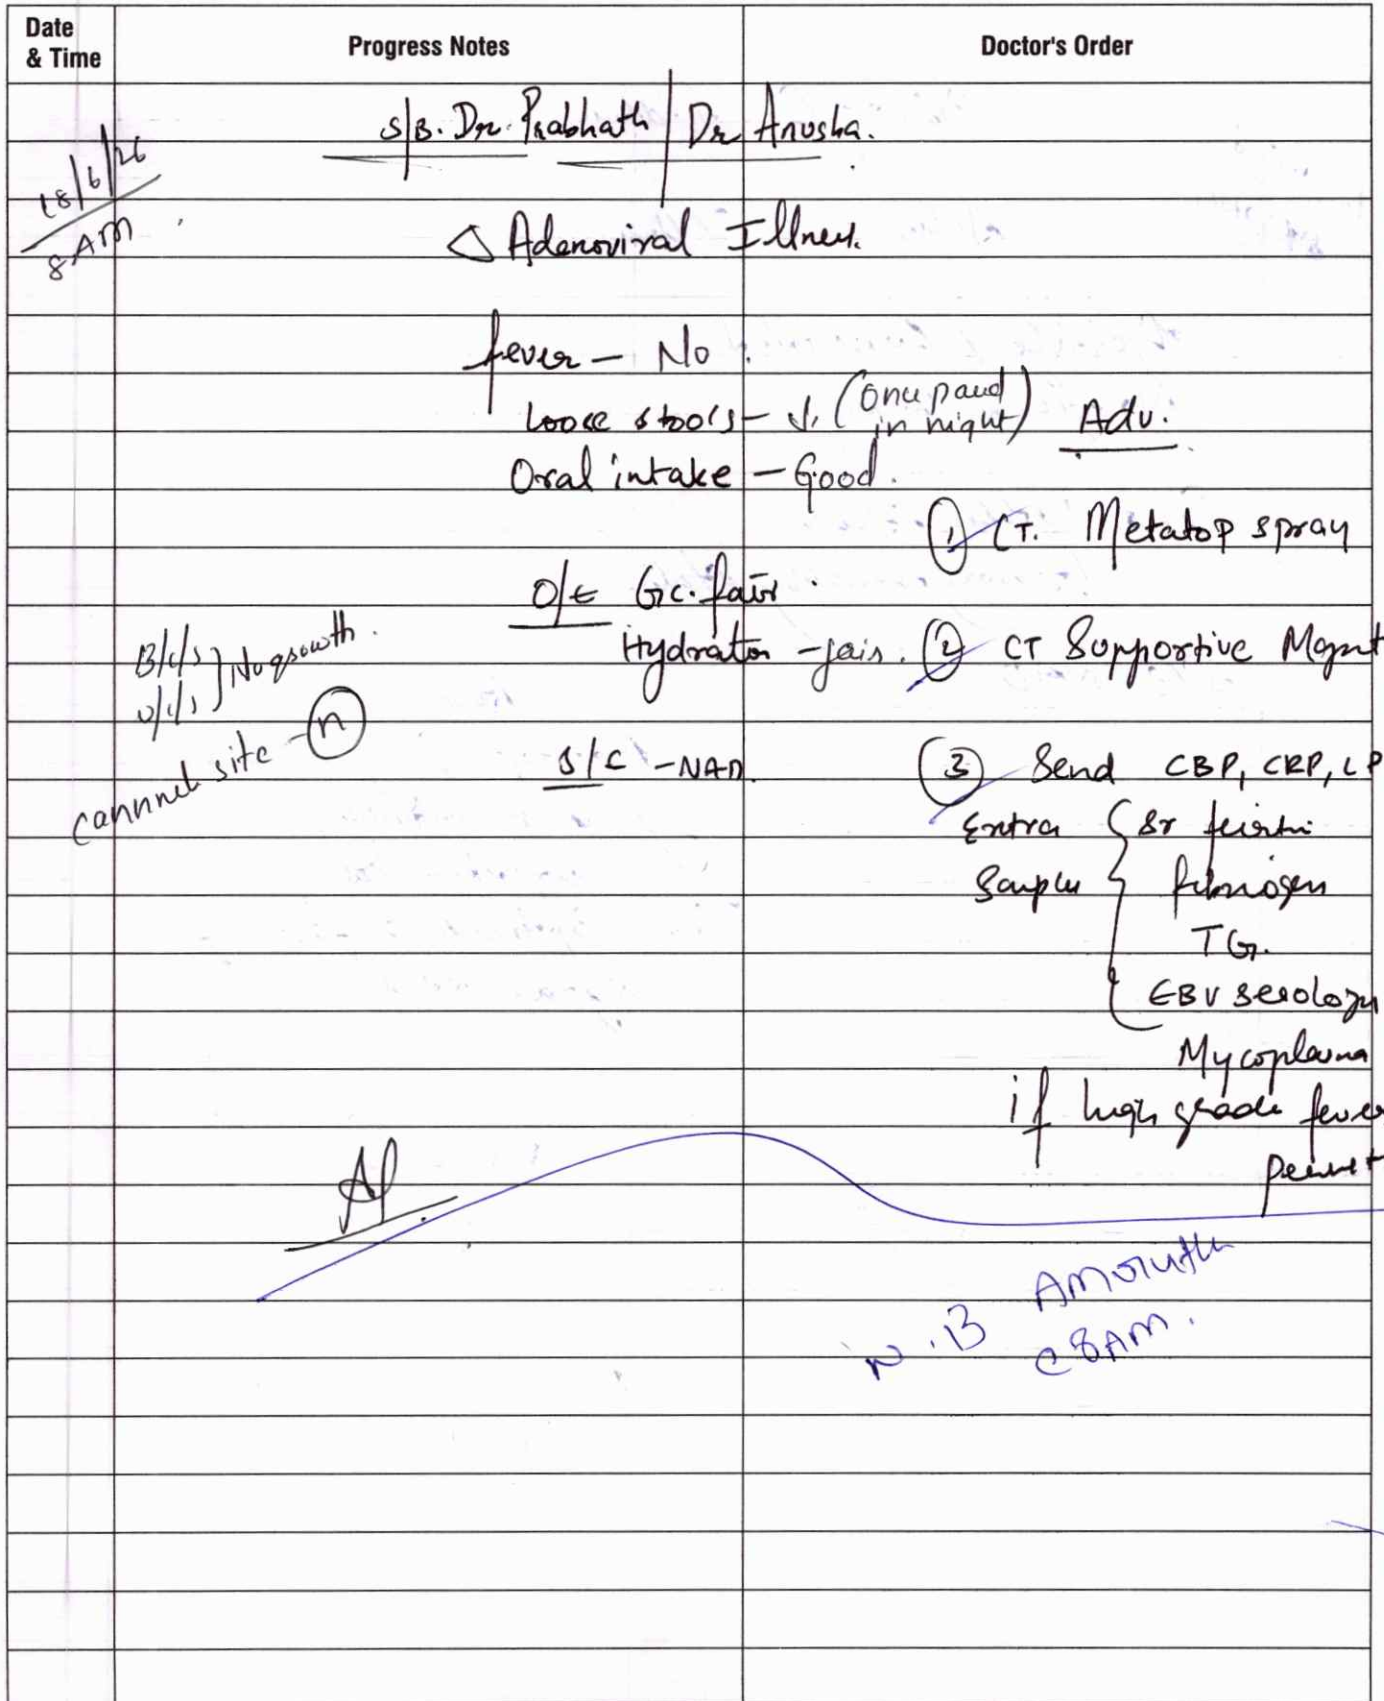 Date & Time
Progress Notes
Doctor's Order
18/6/26
8 AM
S/B. Dr. Prabhath / Dr Anusha.
Δ Adenoviral Illness.
fever – No
Loose stools – ↓. (Once passed in night)
Oral intake – Good.
O/E Gc. fair
Hydration – fair.
S/E – NAD
B/C/S } No growth.
U/C/S
cannula site – (n)
Adv.
① CT. Metatop spray
② CT Supportive Mgmt
③ Send CBP, CRP, LP
Extra Samples { Sr ferritin
fibrinogen
TG.
EBV serology
Mycoplasma
if high grade fever
persist
N.B
@ 8AM.